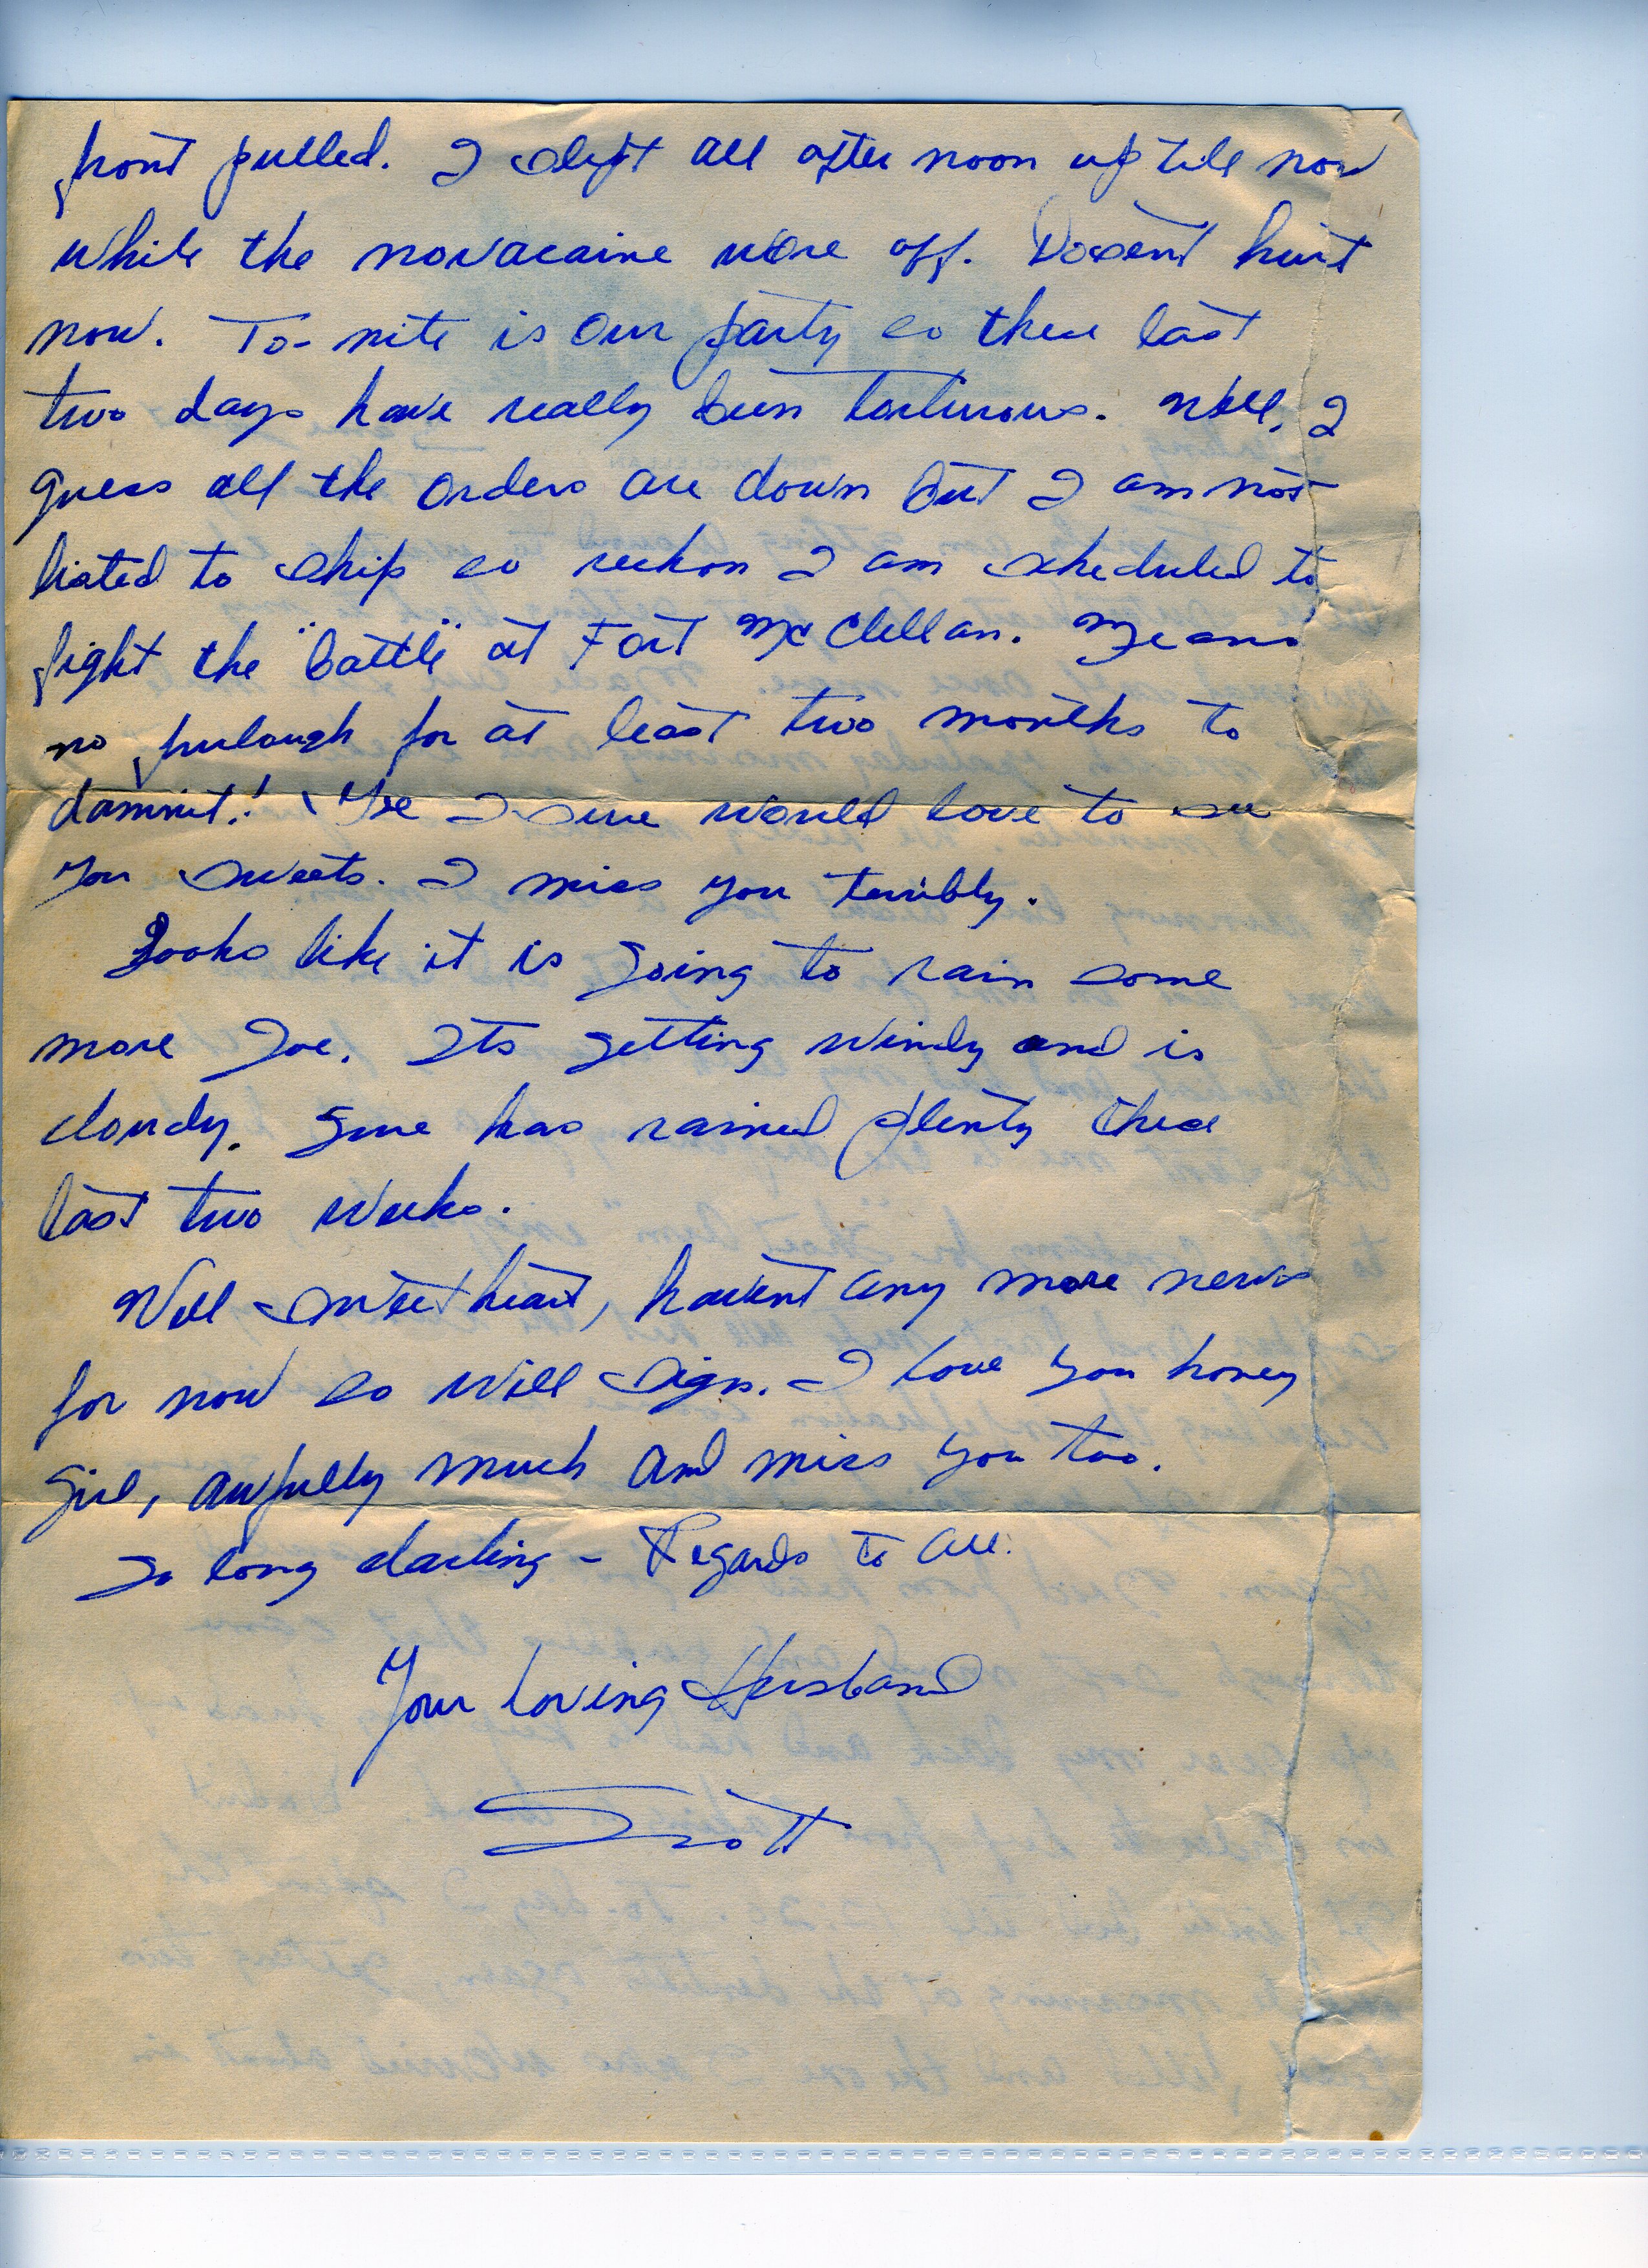 front pulled. I slept all after noon up till now
while the novacaine wore off. Doesent hurt
now. To-nite is our party so these last
two days have really been torturous. Well, I
guess all the orders are down but I am not
listed to ship so reckon I am scheduled to
fight the "battle" at Fort McClellan. Means
no furlough for at least two months to
damnit! I sure would love to see
you sweets. I miss you terribly.
Looks like it is going to rain some
more Joe. Its getting windy and is
cloudy. Sure has rained plenty these
last two weeks.
Well sweetheart, havent any more news
for now so will sign. I love you honey
girl, awfully much and miss you too.
So long darling - Regards to all.
Your loving Husband
Scott